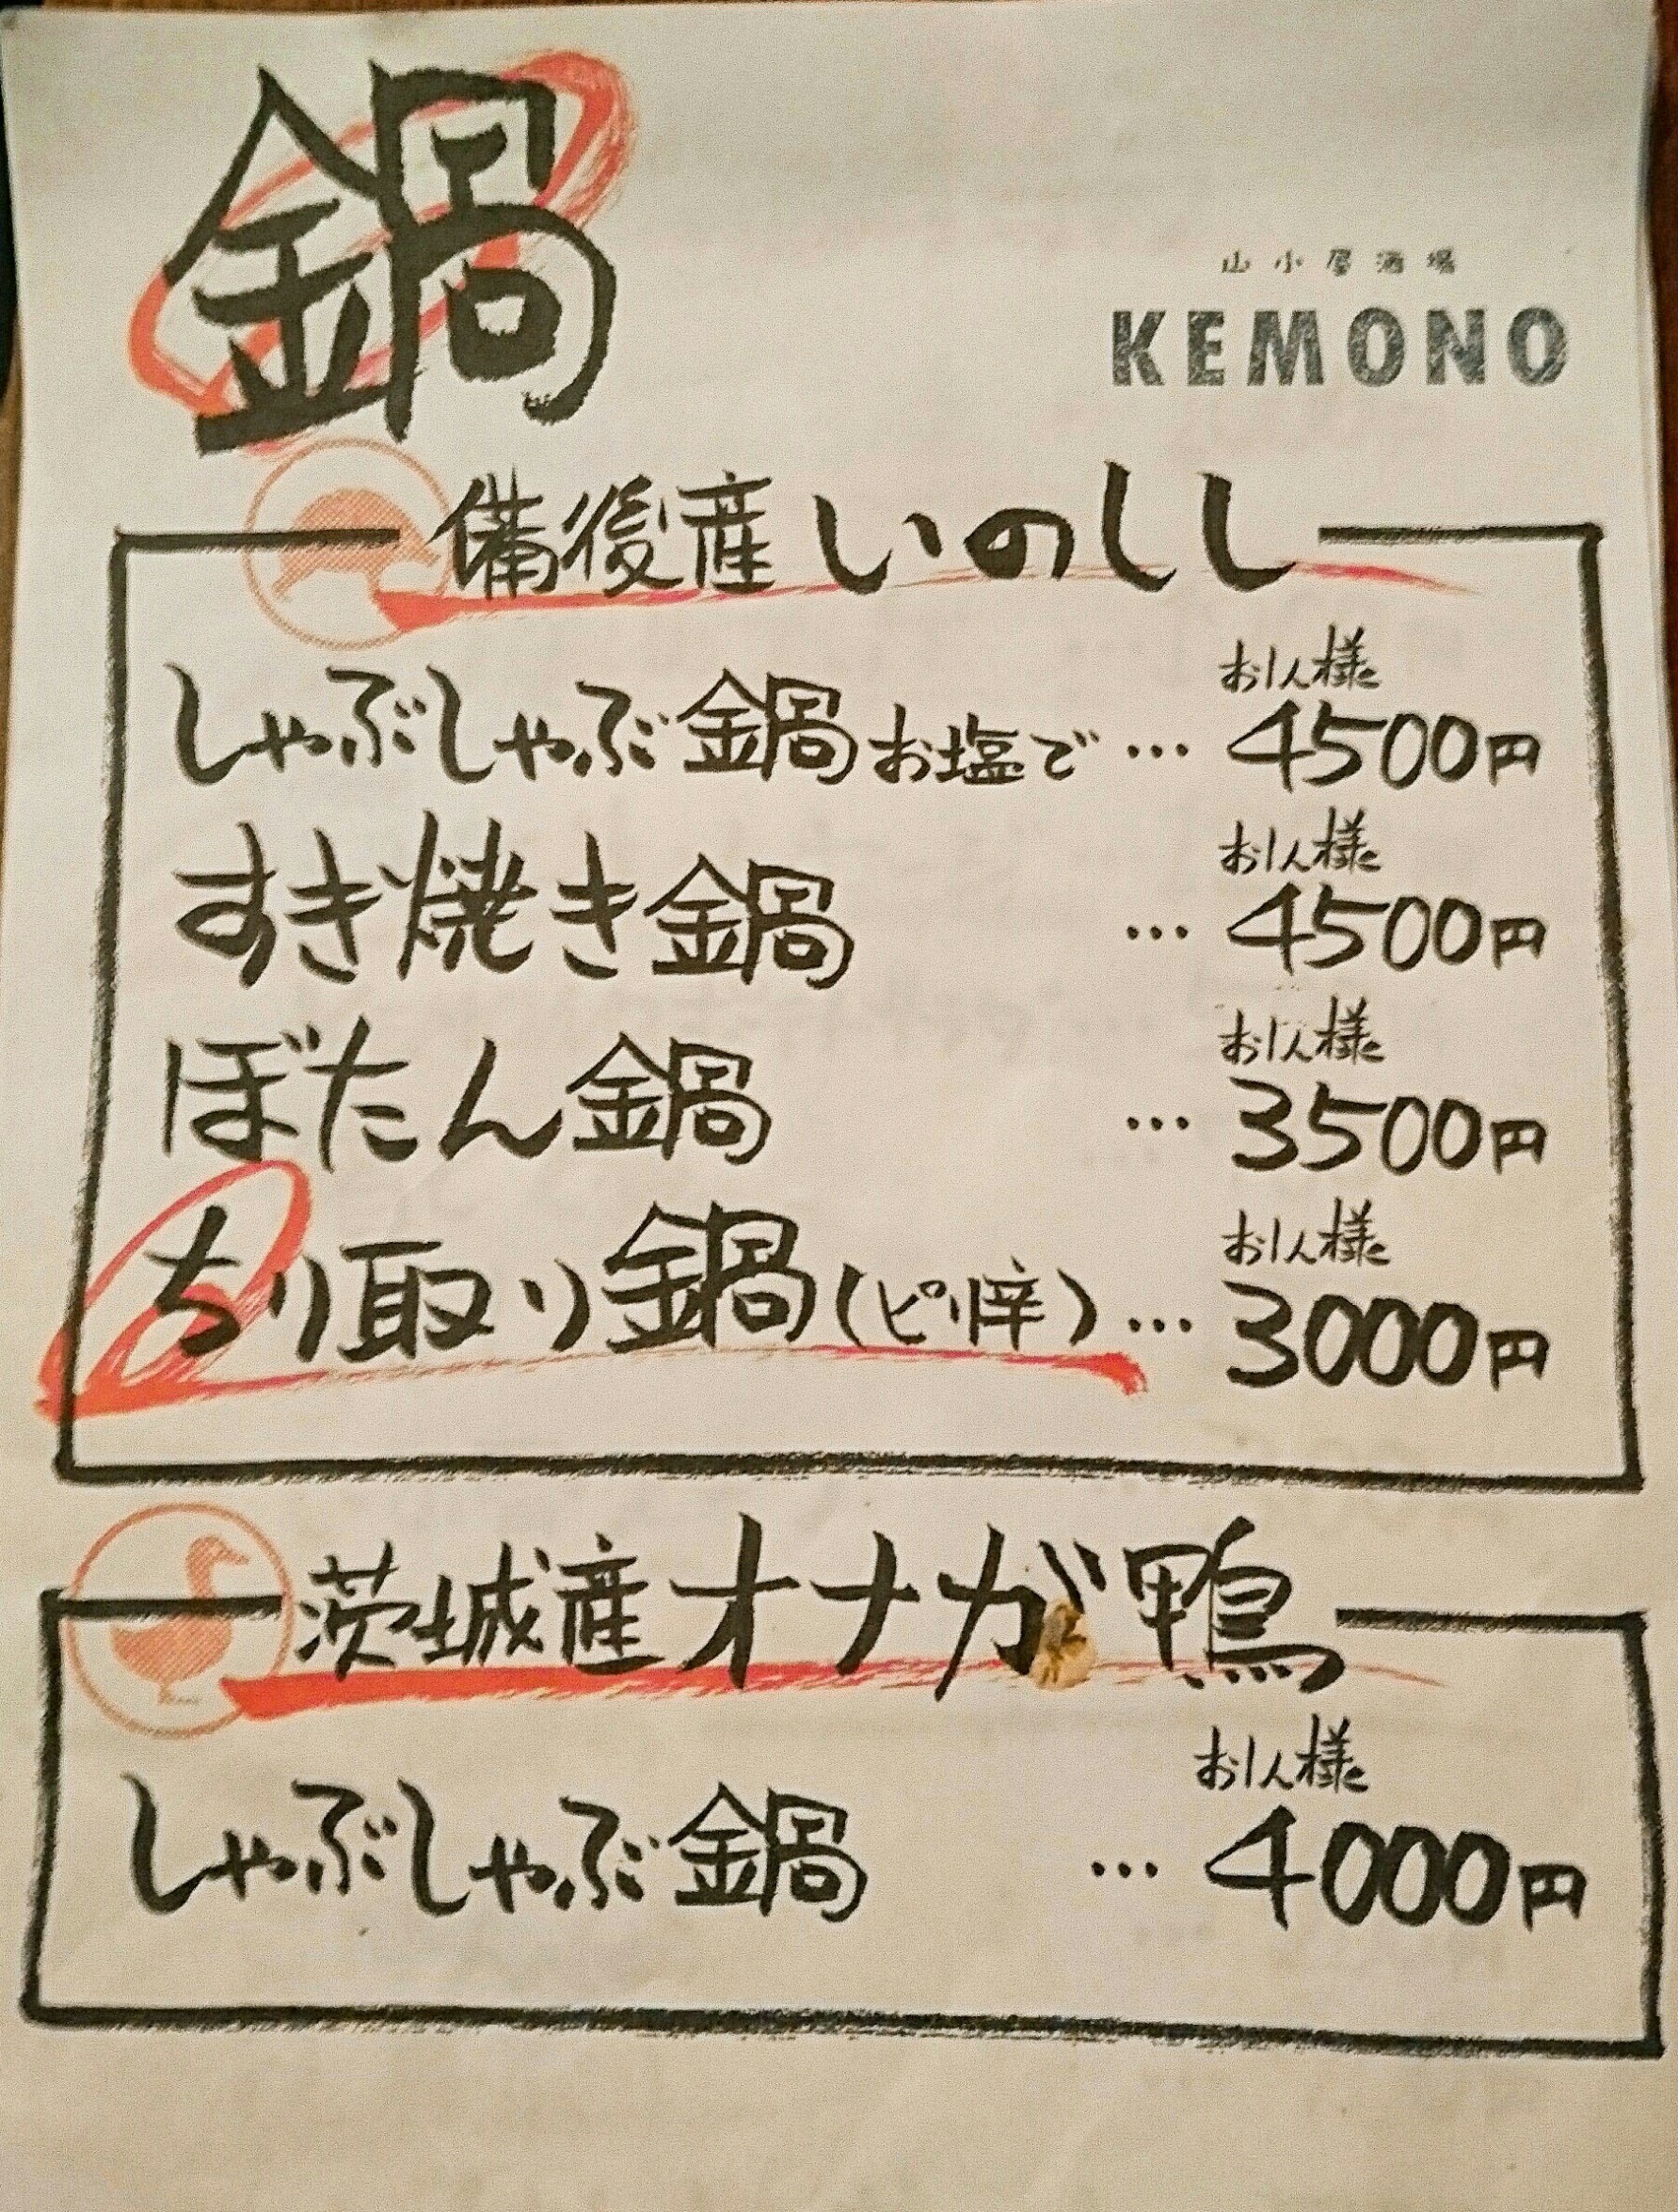 鍋
山小屋酒場
KEMONO
備後産いのしし
お1人様
しゃぶしゃぶ鍋お塩で…4500円
お1人様
すき焼き鍋…4500円
お1人様
ぼたん鍋…3500円
お1人様
ちり取り鍋(ピリ辛)…3000円
茨城産オナガ鴨
お1人様
しゃぶしゃぶ鍋…4000円